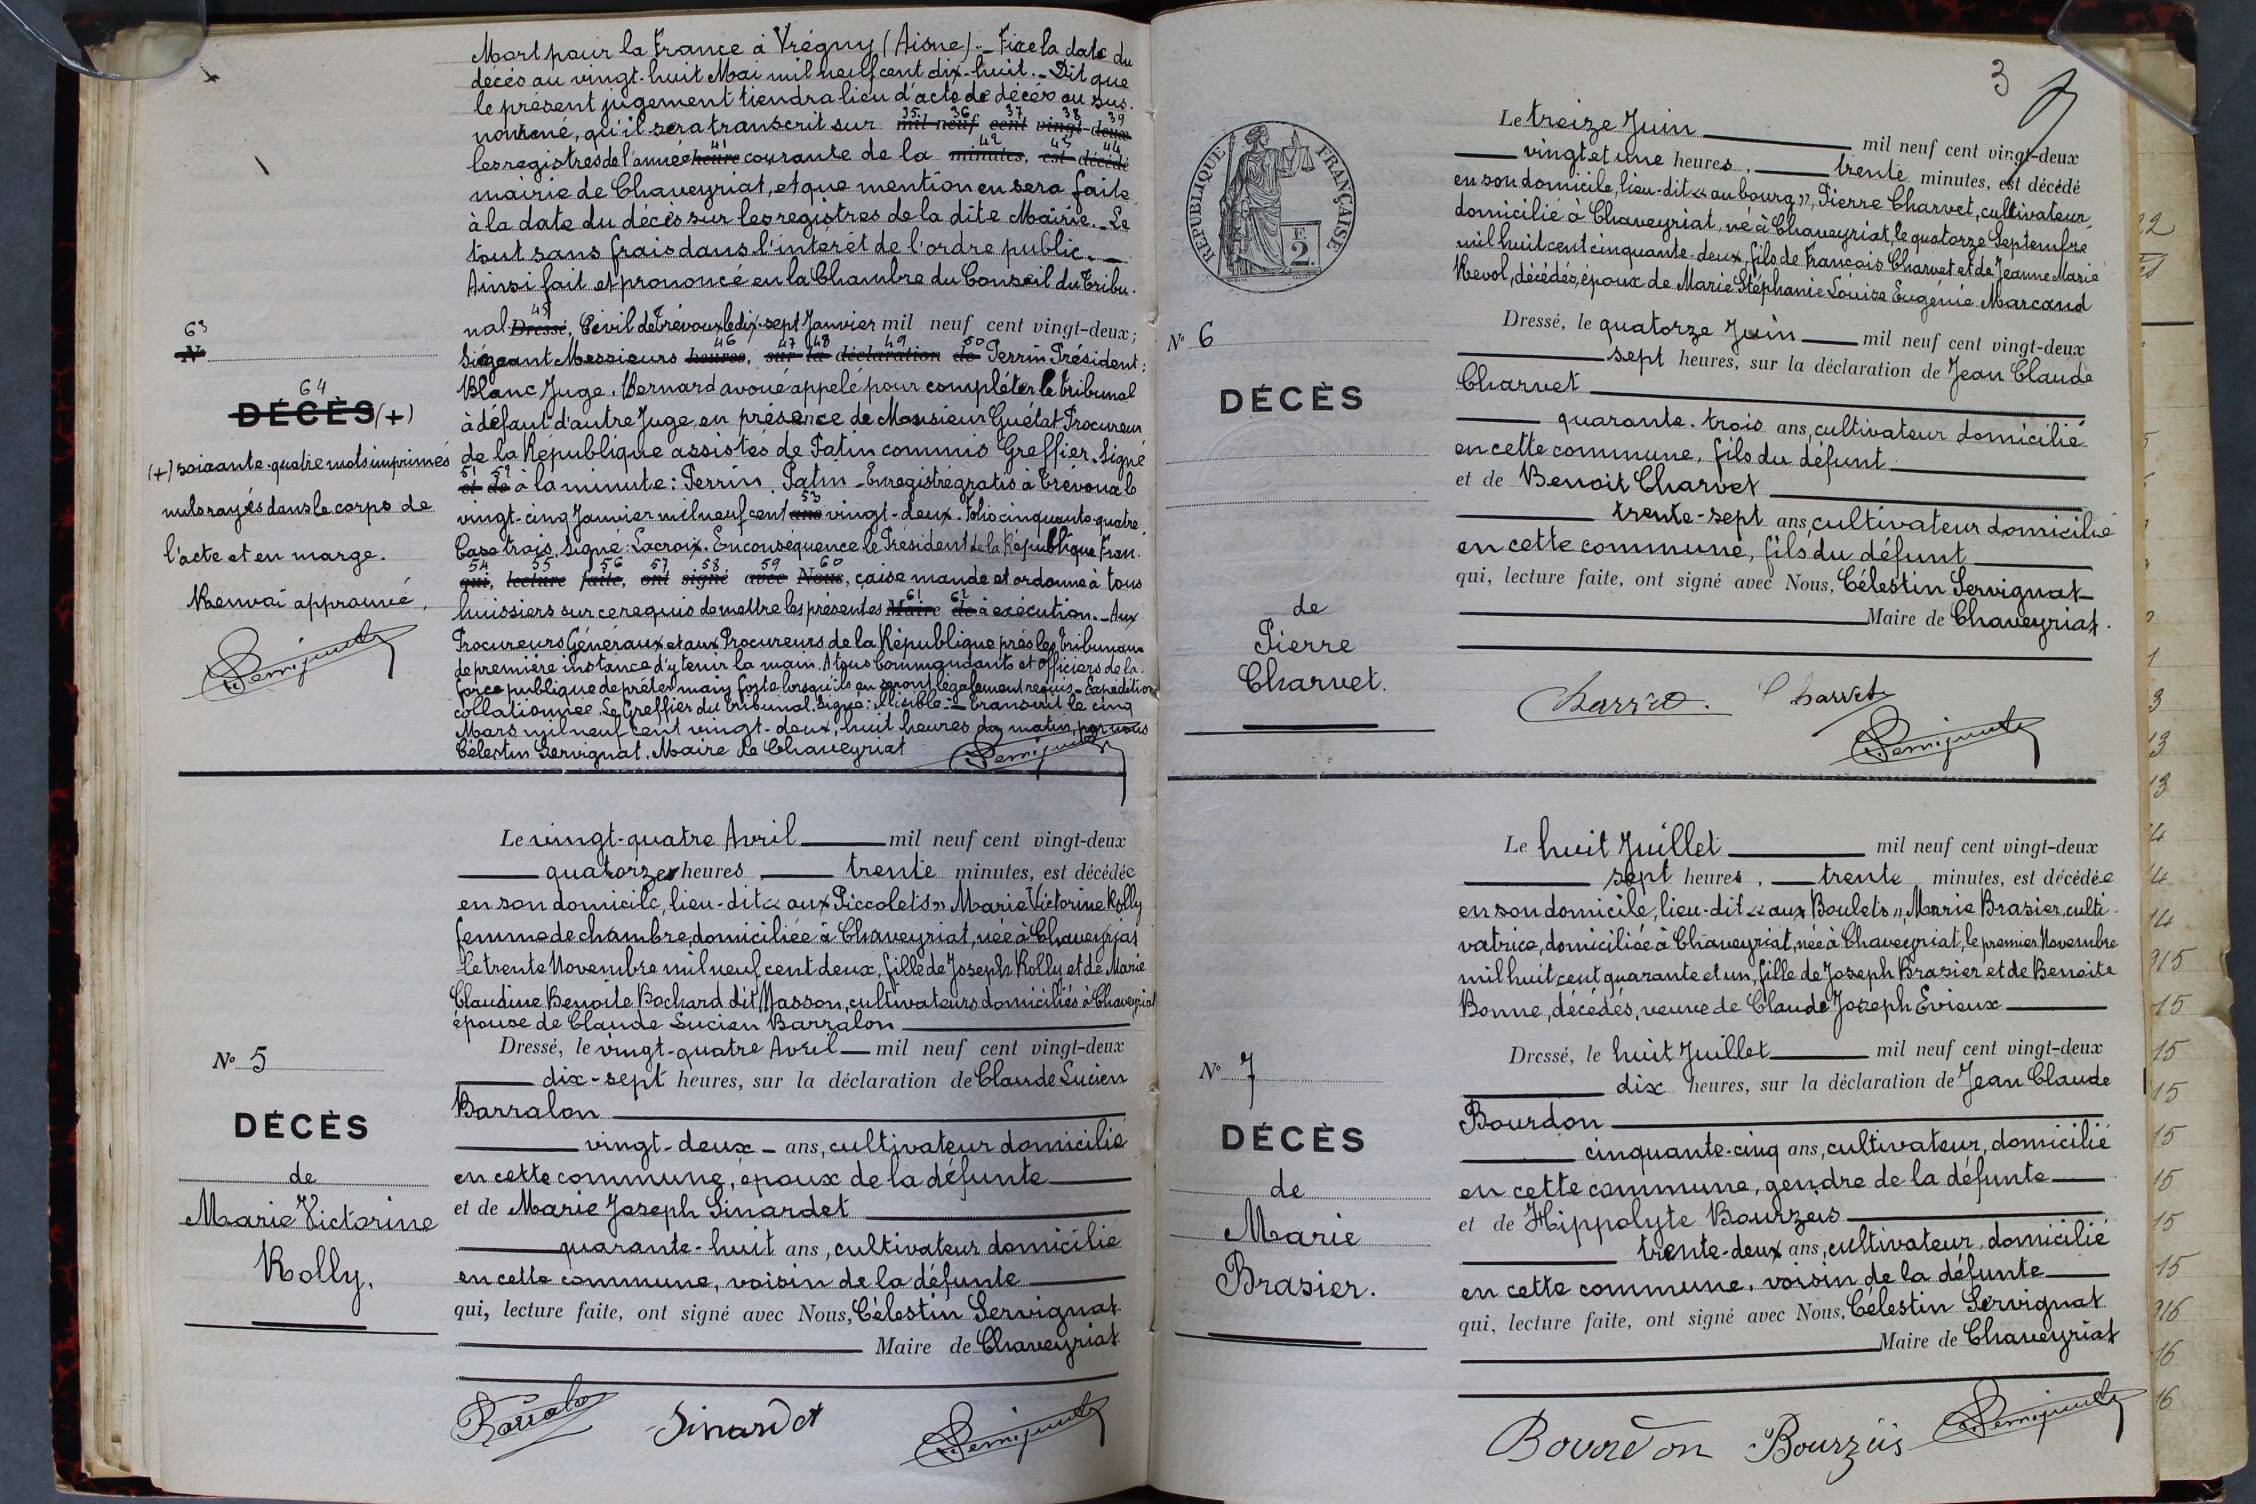 Mort pour la France à Vrégny (Aisne). - Fixe la date du
décès au vingt-huit Mai mil neuf cent dix-huit. - Dit que
le présent jugement tiendra lieu d'acte de décès au sus-
nommé, qu'il sera transcrit sur mil neuf cent vingt-deux
35 36 37 38 39
les registres de l'année heure courante de la minutes, est décédé
41 42 43 44
mairie de Chaveyriat, et que mention en sera faite
à la date du décès sur les registres de la dite Mairie. - Le
tout sans frais dans l'intérêt de l'ordre public. -
Ainsi fait et prononcé en la Chambre du Conseil du Tribu-
nal Dressé, Civil de Trévoux le dix-sept Janvier mil neuf cent vingt-deux;
45
Siégeant Messieurs heures, sur la déclaration de Perrin Président;
46 47 48 49 50
Blanc Juge, Bernard avoué appelé pour compléter le tribunal
à défaut d'autre Juge, en présence de Monsieur Guétat Procureur
de la République assistés de Patin commis Greffier. Signé
51 52
et de à la minute: Perrin. Patin - Enregistré gratis à Trévoux le
vingt-cinq Janvier mil neuf cent ans vingt-deux. Folio cinquante-quatre
53
Case trois. Signé: Lacroix. En conséquence le Président de la République Fran-
54 55 56 57 58 59 60
qui, lecture faite, ont signé avec Nous, çaise mande et ordonne à tous
huissiers sur ce requis de mettre les présentes Maire de à exécution. - Aux
61 62
Procureurs Généraux et aux Procureurs de la République près les tribunaux
de première instance d'y tenir la main. A tous Commandants et officiers de la
force publique de prêter main forte lorsqu'ils en seront légalement requis - Expédition
collationnée. Le Greffier du tribunal. Signé: illisible. - Transcrit le cinq
Mars mil neuf cent vingt-deux, huit heures du matin, par nous
Célestin Servignat, Maire de Chaveyriat
63
N°
64
DÉCÈS (+)
(+) soixante-quatre mots imprimés
nuls rayés dans le corps de
l'acte et en marge.
Renvoi approuvé.
Le vingt-quatre Avril mil neuf cent vingt-deux
quatorze heures, trente minutes, est décédée
en son domicile, lieu-dit « aux Piccolets » Marie Victorine Rolly
femme de chambre, domiciliée à Chaveyriat, née à Chaveyriat
le trente Novembre mil neuf cent deux, fille de Joseph Rolly et de Marie
Claudine Benoite Bochard dit Masson, cultivateurs domiciliés à Chaveyriat
épouse de Claude Lucien Barralon
Dressé, le vingt-quatre Avril mil neuf cent vingt-deux
dix-sept heures, sur la déclaration de Claude Lucien
Barralon
vingt-deux ans, cultivateur domicilié
en cette commune, époux de la défunte
et de Marie Joseph Sinardet
quarante-huit ans, cultivateur domicilié
en cette commune, voisin de la défunte
qui, lecture faite, ont signé avec Nous, Célestin Servignat
Maire de Chaveyriat
N° 5
DÉCÈS
de
Marie Victorine
Rolly.
Barralon Sinardet
3
RÉPUBLIQUE FRANÇAISE
F.
2.
Le treize Juin mil neuf cent vingt-deux
vingt et une heures, trente minutes, est décédé
en son domicile, lieu-dit « au bourg », Pierre Charvet, cultivateur
domicilié à Chaveyriat, né à Chaveyriat, le quatorze Septembre
mil huit cent cinquante-deux, fils de François Charvet et de Jeanne Marie
Revol, décédés, époux de Marie Stéphanie Louise Eugénie Marcand
Dressé, le quatorze Juin mil neuf cent vingt-deux
sept heures, sur la déclaration de Jean Claude
Charvet
quarante-trois ans, cultivateur domicilié
en cette commune, fils du défunt
et de Benoit Charvet
trente-sept ans, cultivateur domicilié
en cette commune, fils du défunt
qui, lecture faite, ont signé avec Nous, Célestin Servignat
Maire de Chaveyriat.
N° 6
DÉCÈS
de
Pierre
Charvet.
Charvet
Le huit Juillet mil neuf cent vingt-deux
sept heures, trente minutes, est décédée
en son domicile, lieu-dit « aux Boulets » Marie Brasier, culti-
vatrice, domiciliée à Chaveyriat, née à Chaveyriat, le premier Novembre
mil huit cent quarante et un, fille de Joseph Brasier et de Benoite
Bonne, décédés, veuve de Claude Joseph Evieux
Dressé, le huit Juillet mil neuf cent vingt-deux
dix heures, sur la déclaration de Jean Claude
Bourdon
cinquante-cinq ans, cultivateur, domicilié
en cette commune, gendre de la défunte
et de Hippolyte Bourzeis
trente-deux ans, cultivateur, domicilié
en cette commune, voisin de la défunte
qui, lecture faite, ont signé avec Nous, Célestin Servignat
Maire de Chaveyriat
N° 7
DÉCÈS
de
Marie
Brasier.
Bourdon Bourzeis